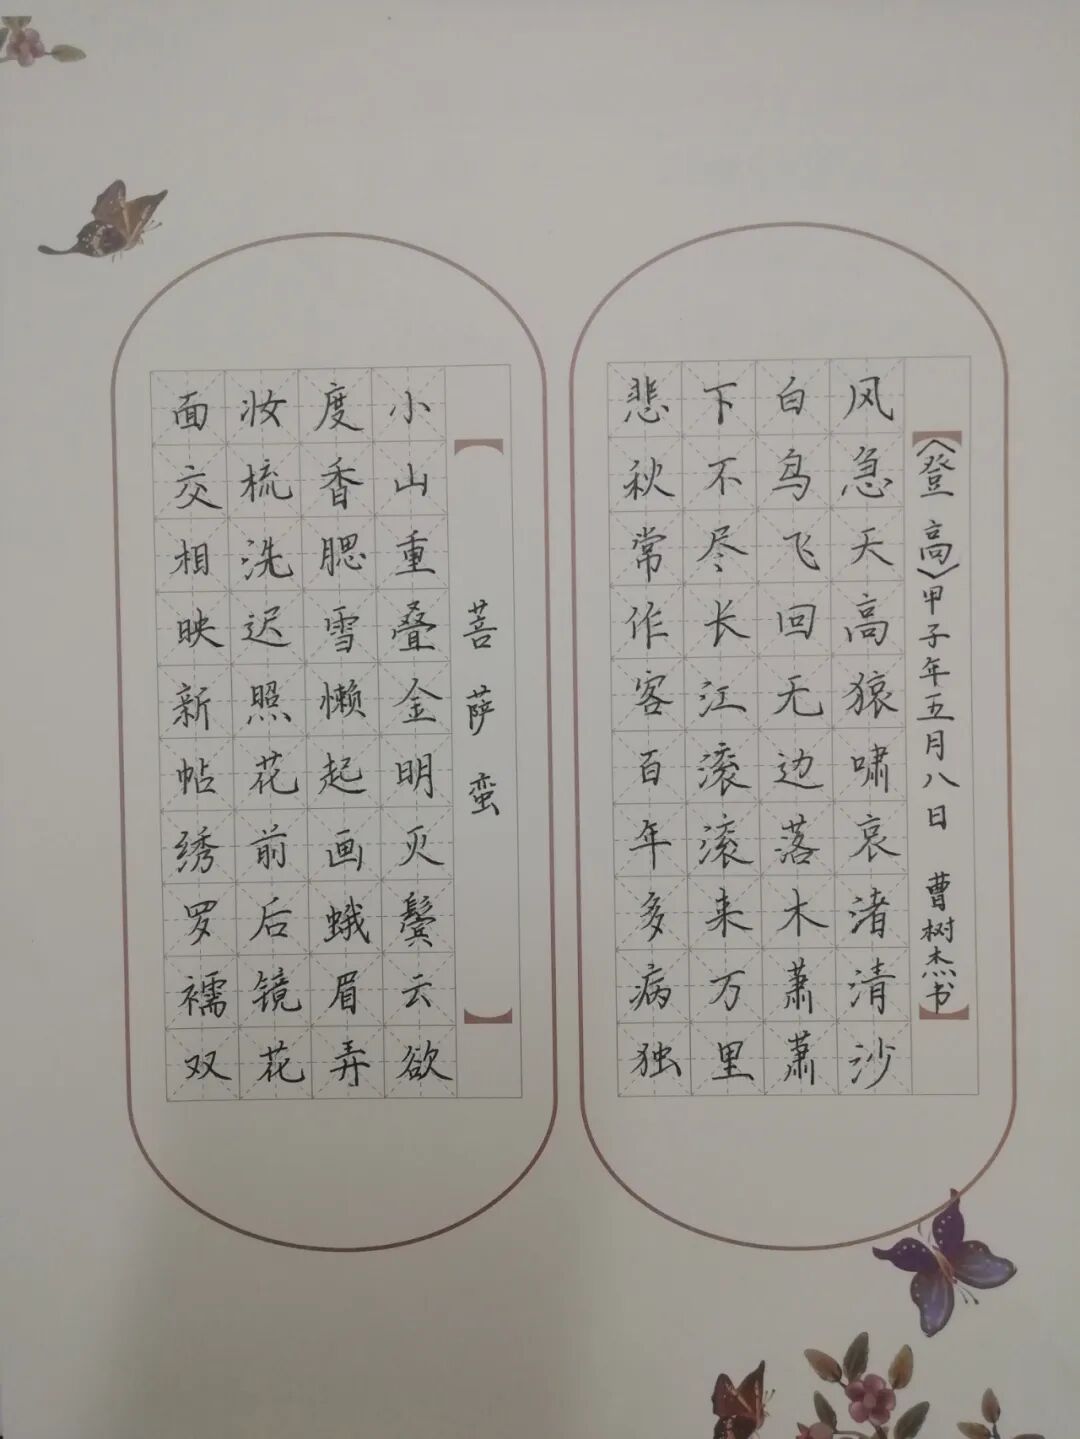 〈登高〉甲子年五月八日 曹树杰书
风急天高猿啸哀渚清沙
白鸟飞回无边落木萧萧
下不尽长江滚滚来万里
悲秋常作客百年多病独
菩萨蛮
小山重叠金明灭鬓云欲
度香腮雪懒起画蛾眉弄
妆梳洗迟照花前后镜花
面交相映新帖绣罗襦双